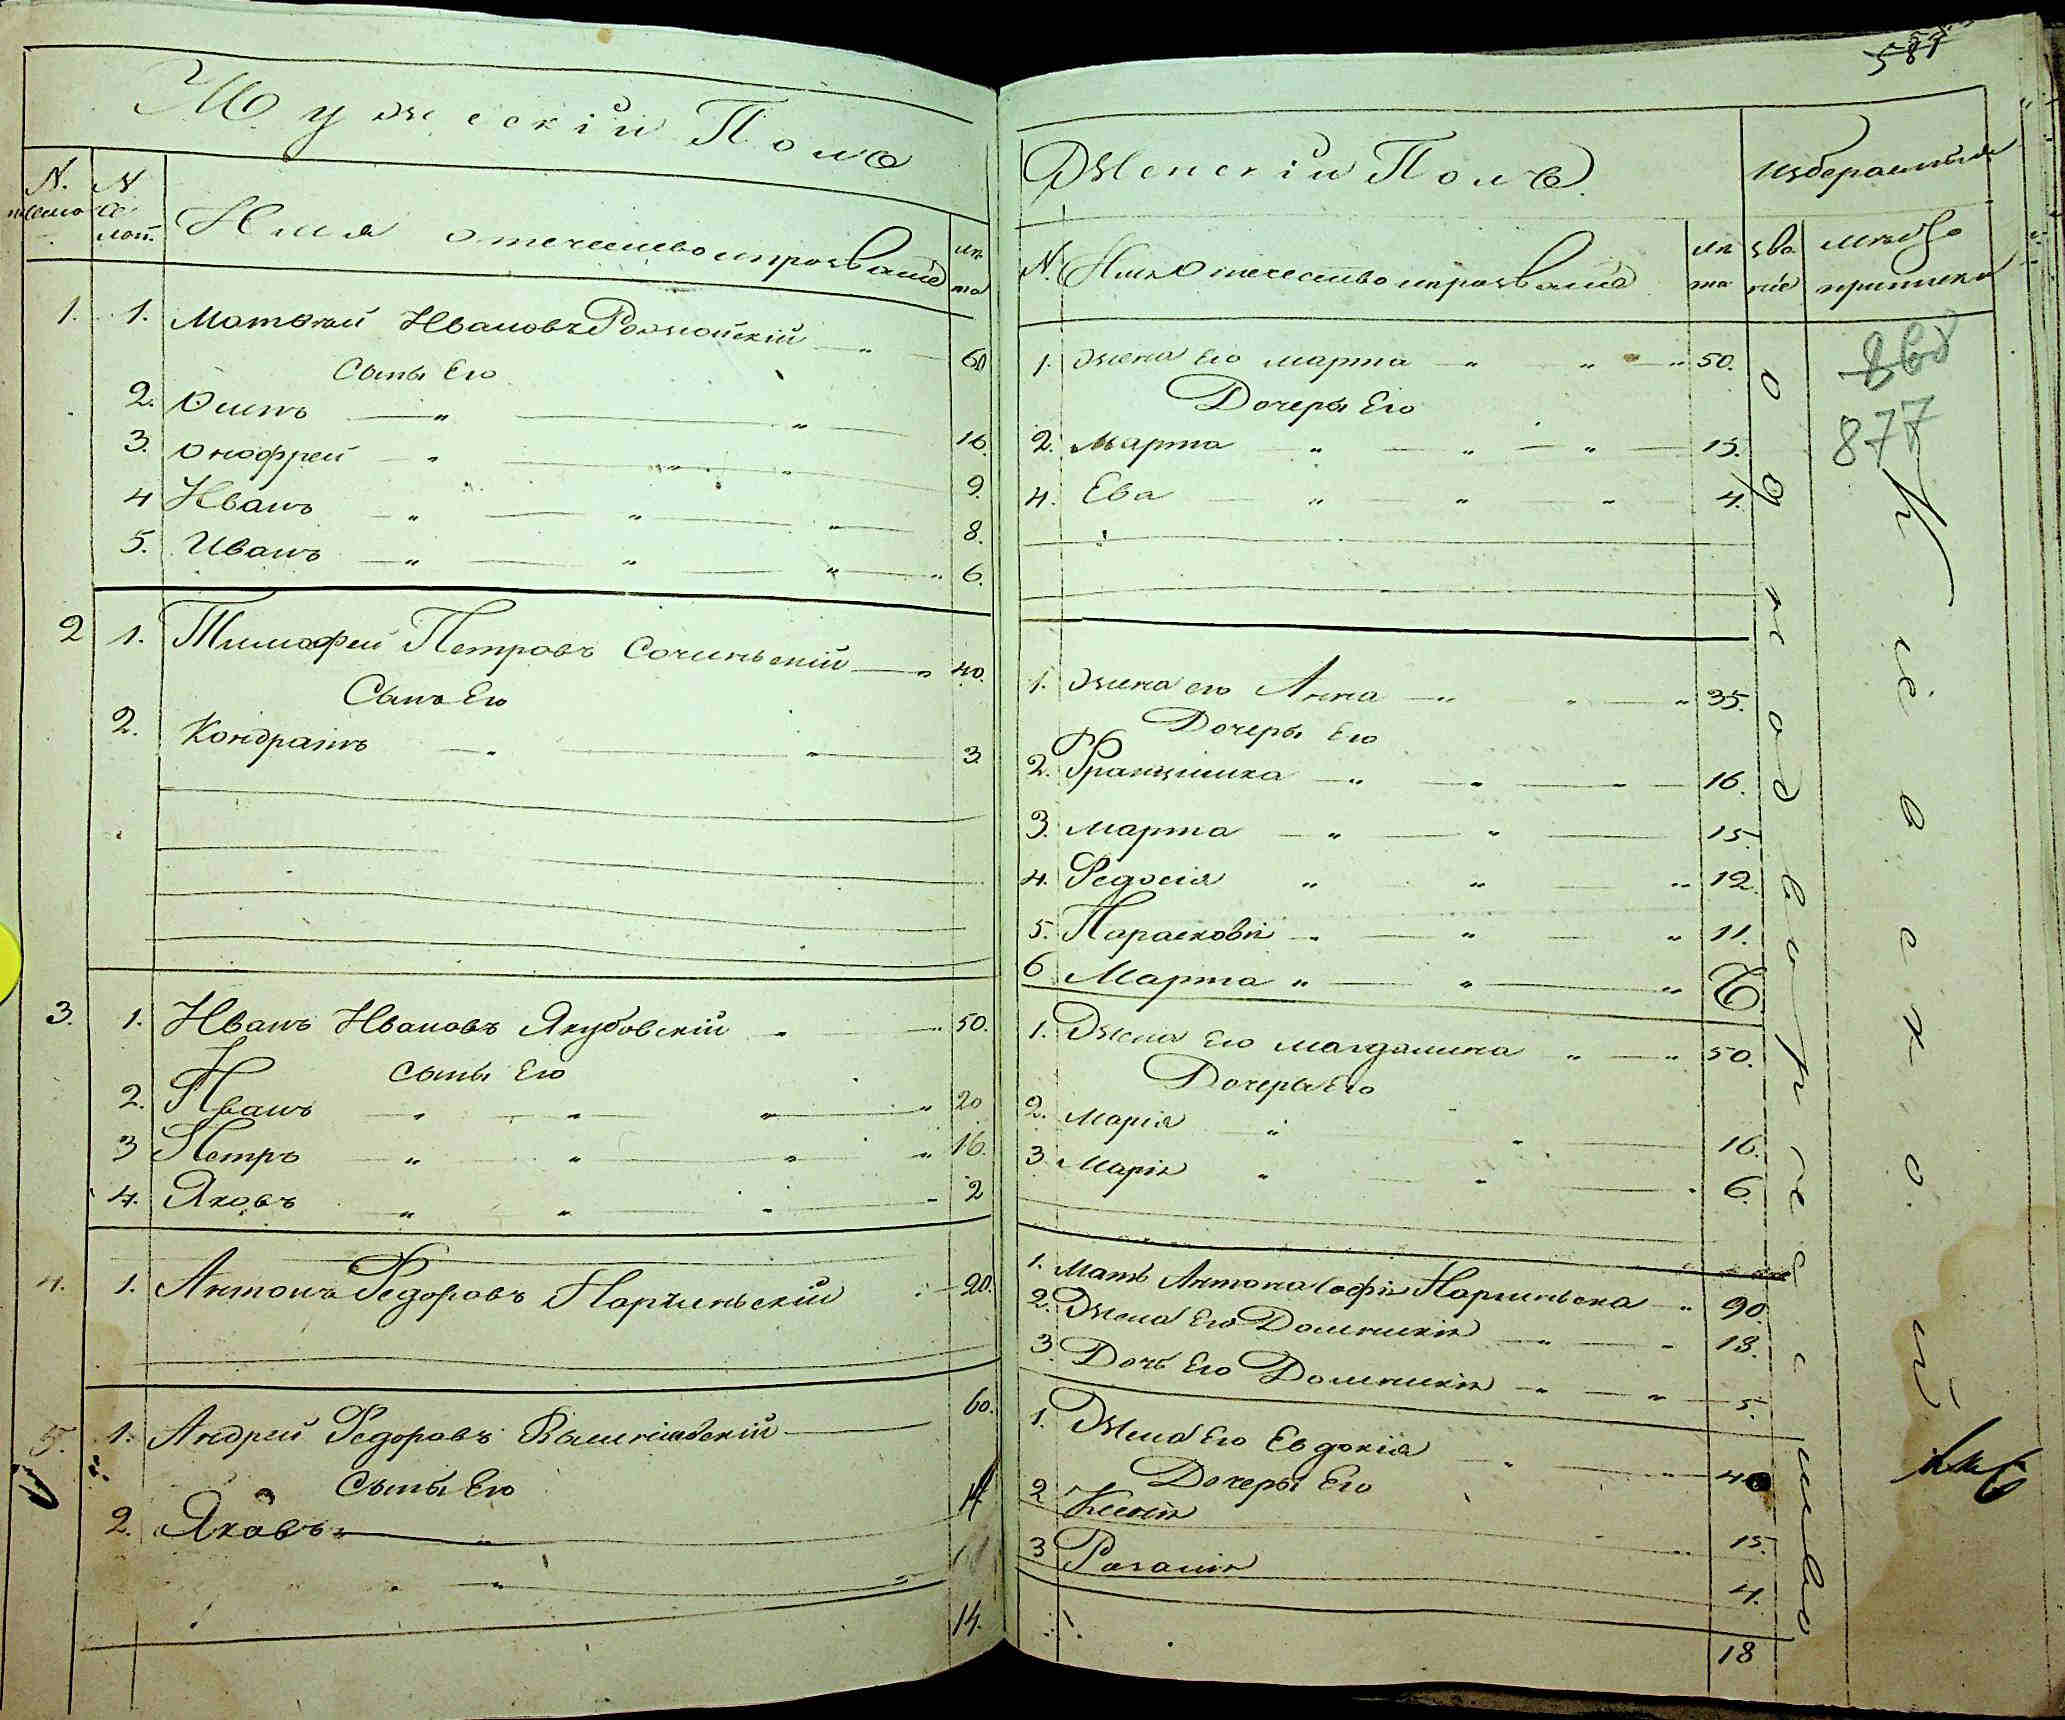 Мужескій Полъ
N.
N
Имя отечество и прозваніе
лѣ
та
1. 1. Матвей Ивановъ 60
Сыны Его
2. Осипъ 16.
3. Онофрей 9.
4 Иванъ 8.
5. Иванъ 6.
2 1. Тимофей Петровъ Сочиньскій 40.
Сынъ Его
2. Кондратъ 3.
3. 1. Иванъ Ивановъ Якубовскій 50.
Сыны Его
2. Иванъ 20
3 Петръ 16.
4. Яковъ 2
4. 1. Антонъ Федоровъ Нарчиньскій 20.
5. 1. Андрей Федоровъ 60.
Сыны Его
2. Яковъ 14
14.
587
Женскій Полъ
Избераемыя
N. Имя Отечество и прозваніе
лѣ
та
зва
ніе
мѣсто
приписки
877
1. Жена Его Марта 50.
Дочеры Его
2. Марта 15.
4. Ева 4.
1. Жена его Анна 35.
Дочеры Его
2. Францишка 16.
3. Марта 15.
4. Федосія 12.
5. Парасковія 11.
6 Марта
1. Жена Его Магдалина 50.
Дочеры Его
2. Марія 16.
3 Марія 6.
1. Мать Антона Софія Нарчиньска 90.
2. Жена Его Доминикія 18.
3. Дочь Его Доминикія 5.
1. Жена Его Евдокія 40
Дочеры Его
2 Ксенія 15.
3 Розалія 4.
18
однодворческое
Кіевской